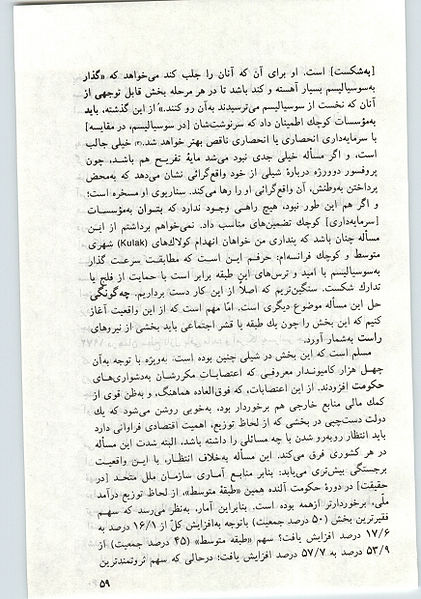 [به‌شکست] است. او برای آن که آنان را جلب کند می‌خواهد که «گذار
به‌سوسیالیسم بسیار آهسته و کند باشد تا در هر مرحله بخش قابل توجهی از
آنان که نخست از سوسیالیسم می‌ترسیدند به‌آن رو کنند.» از این گذشته، باید
به‌مؤسسات کوچك اطمینان داد که سرنوشت‌شان [در سوسیالیسم، در مقایسه]
با سرمایه‌داری انحصاری یا انحصاری ناقص بهتر خواهد شد. خیلی جالب
است، و اگر مسأله خیلی جدی نبود می‌شد مایهٔ تفریح هم باشد. چون
پروفسور دوورژه دربارهٔ شیلی از خود واقع‌گرائی نشان می‌دهد که به‌محض
پرداختن به‌وطنش، آن واقع‌گرائی او را رها می‌کند. سناریوی او مسخره است؛
و اگر هم این طور نبود، هیچ راهی وجود ندارد که بتوان به‌مؤسسات
[سرمایه‌داری] کوچك تضمین‌های مناسب داد. نمی‌خواهم برداشتم از این
مسأله چنان باشد که پنداری من خواهان انهدام کولاك‌های (Kulak) شهری
متوسط و کوچك فرانسه‌ام: حرفم این است که مطابقت سرعت گذار
به‌سوسیالیسم با امید و ترس‌های این طبقه برابر است با حمایت از فلج یا
تدارك شکست. سنگین‌تریم که اصلاً از این کار دست برداریم. چه‌گونگی
حل این مسأله موضوع دیگری است. امّا مهم است که از این واقعیت آغاز
کنیم که این بخش را چون یك طبقه یا قشر اجتماعی باید بخشی از نیروهای
راست به‌شمار آورد.
مسلم است که این بخش در شیلی چنین بوده است: به‌ویژه با توجه به‌آن
چهل هزار کامیوندار معروفی که اعتصابات مکررشان به‌دشواری‌های
حکومت افزودند. از این اعتصابات، که فوق‌العاده هماهنگ، و به‌ظن قوی از
کمك مالی منابع خارجی هم برخوردار بود، به‌خوبی روشن می‌شود که یك
دولت دست‌چپی در بخشی که از لحاظ توزیع، اهمیت اقتصادی فراوانی دارد
باید انتظار روبه‌رو شدن با چه مسائلی را داشته باشد، البته شدت این مسأله
در هر کشوری فرق می‌کند. این مسأله به‌خلاف انتظار، با این واقعیت
برجستگی بیش‌تری می‌یابد: بنابر منابع آماری سازمان ملل متحد [در
حقیقت] در دورهٔ حکومت آلنده همین «طبقهٔ متوسط»، از لحاظ توزیع درآمد
ملّی، برخوردارتر ازهمه بوده است. بنابراین آمار، به‌نظر می‌رسد که سهم
فقیرترین بخش (۵۰ درصد جمعیت) باتوجه به‌افزایش کلّ از ۱۶/۱ درصد به
۱۷/۶ درصد افزایش یافت؛ سهم «طبقه متوسط» (۴۵ درصد جمعیت) از
۵۳/۹ درصد به ۵۷/۷ درصد افزایش یافت؛ درحالی که سهم ثروتمندترین
۵۹